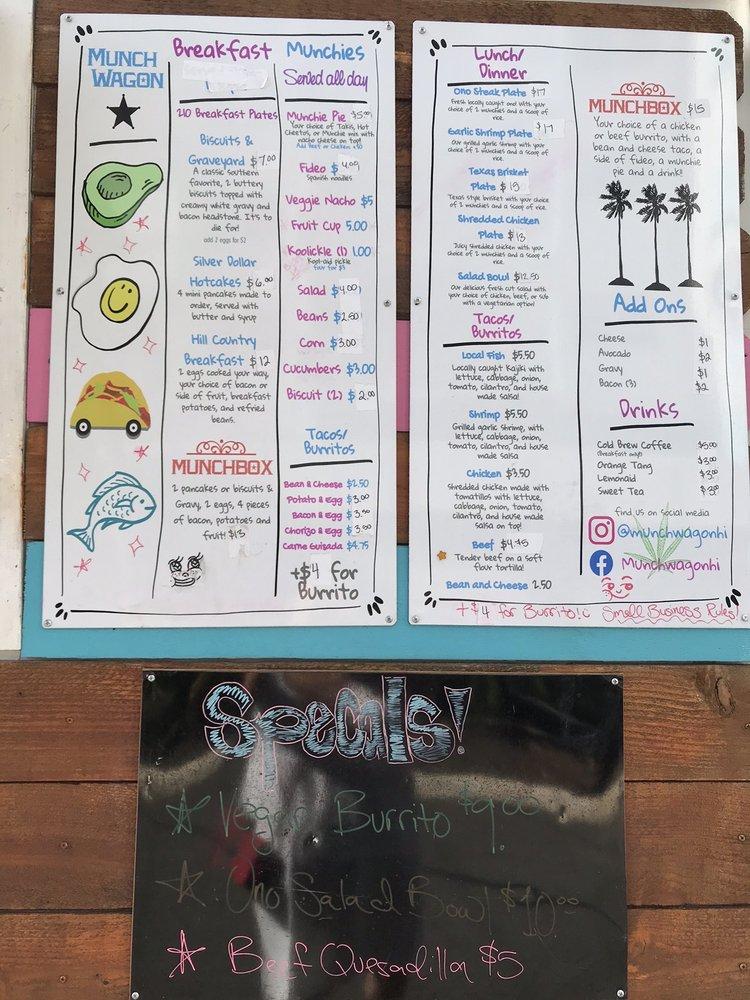 MUNCH
WAGON
Breakfast
210 Breakfast Plates
Biscuits &
Graveyard $7.00
A classic southern
favorite, 2 buttery
biscuits topped with
creamy white gravy and
bacon headstone. It's to
die for!
add 2 eggs for $2
Silver Dollar
Hotcakes $6.00
4 mini pancakes made to
order, served with
butter and syrup
Hill Country
Breakfast $12
2 eggs cooked your way,
your choice of bacon or
side of fruit, breakfast
potatoes, and refried
beans.
MUNCHBOX
2 pancakes or biscuits &
Gravy, 2 eggs, 4 pieces
of bacon, potatoes and
fruit! $13
Munchies
Served all day
Munchie Pie $5.00
Your choice of Takis, Hot
Cheetos, or Munchie mix with
nacho cheese on top!
Add Beef or Chicken +$0
Fideo $4.00
Spanish noodles
Veggie Nacho $5
Fruit Cup 5.00
Koolickle (1) 1.00
Kool-aid pickle
four for $3
Salad $4.00
Beans $2.50
Corn $3.00
Cucumbers $3.00
Biscuit (2) $2.00
Tacos/
Burritos
Bean & Cheese $2.50
Potato & Egg $3.00
Bacon & Egg $3.50
Chorizo & Egg $3.50
Carne Guisada $4.75
+$4 for
Burrito
Lunch/
Dinner
Ono Steak Plate $17
Fresh locally caught and with your
choice of 2 munchies and a scoop of
rice.
Garlic Shrimp Plate $17
Our grilled garlic shrimp with your
choice of 2 munchies and a scoop of
rice.
Texas Brisket
Plate $15
Texas style brisket with your choice
of 2 munchies and a scoop of rice.
Shredded Chicken
Plate $13
Juicy shredded chicken with your
choice of 2 munchies and a scoop of
rice.
Salad Bowl $12.50
Our delicious fresh cut salad with
your choice of chicken, beef, or sub
with a vegetarian option!
Tacos/
Burritos
Local Fish $5.50
Locally caught Kajiki with
lettuce, cabbage, onion,
tomato, cilantro, and house
made salsa!
Shrimp $5.50
Grilled garlic shrimp, with
lettuce, cabbage, onion,
tomato, cilantro, and house
made salsa
Chicken $3.50
Shredded chicken made with
tomatillos with lettuce,
cabbage, onion, tomato,
cilantro, and house made
salsa on top!
Beef $4.45
Tender beef on a soft
flour tortilla!
Bean and Cheese 2.50
+$4 for Burrito!
MUNCHBOX $15
Your choice of a chicken
or beef burrito, with a
bean and cheese taco, a
side of fideo, a munchie
pie and a drink!
Add Ons
Cheese $1
Avocado $2
Gravy $1
Bacon (3) $2
Drinks
Cold Brew Coffee $5.00
(Breakfast only!)
Orange Tang $3.00
Lemonaid $3.00
Sweet Tea $3.00
find us on social media
@munchwagonhi
Munchwagonhi
Small Business Rules!
Specials!
Vegan Burrito $9.00
Ono Salad Bowl $10.00
Beef Quesadilla $5